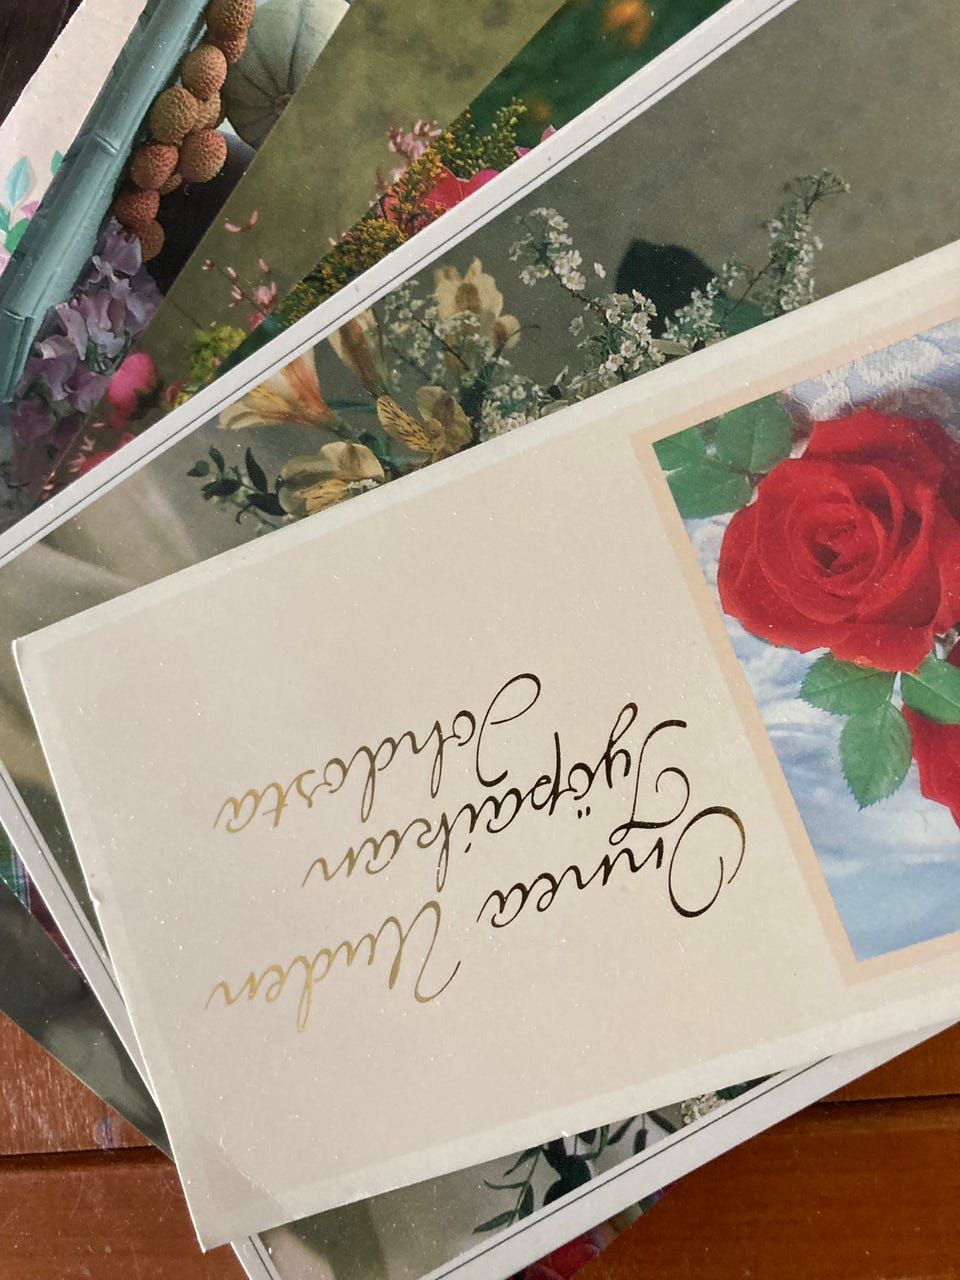 Onnea Uuden
Työpaikan
Johdosta